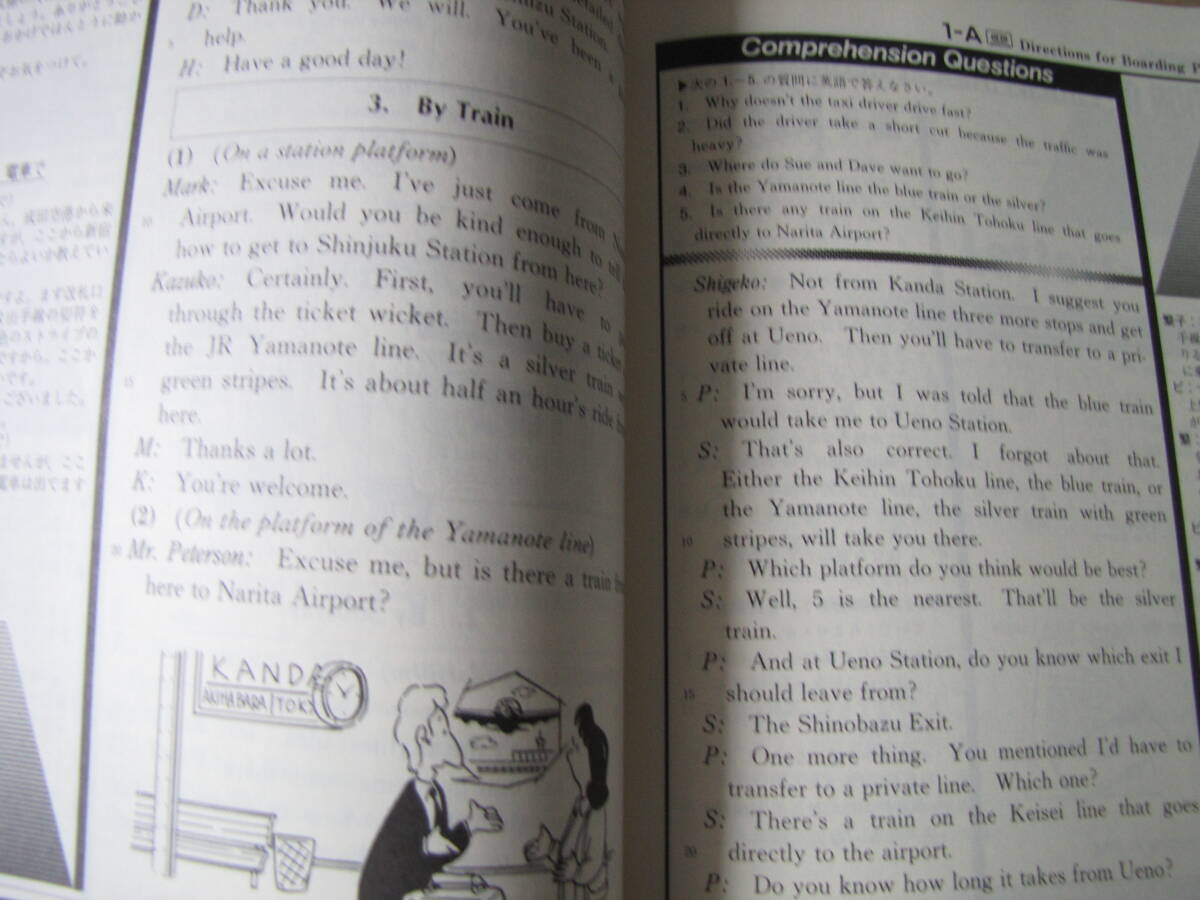 D: Thank you. We will. You've been a
help.
H: Have a good day!
3. By Train
(1) (On a station platform)
Mark: Excuse me. I've just come from
10 Airport. Would you be kind enough to
how to get to Shinjuku Station from here?
Kazuko: Certainly. First, you'll have to
through the ticket wicket. Then buy a ticket
the JR Yamanote line. It's a silver train
15 green stripes. It's about half an hour's ride
here.
M: Thanks a lot.
K: You're welcome.
(2) (On the platform of the Yamanote line)
20 Mr. Peterson: Excuse me, but is there a train
here to Narita Airport?
KANDA
AKIHABARA TOK
電車で
成田空港から来
ここから新宿
まず改札口
ございました。
ませんが、ここ
電車は出てます
1-A Directions for Boarding P
Comprehension Questions
▶次の 1.–5. の質問に英語で答えなさい。
1. Why doesn't the taxi driver drive fast?
2. Did the driver take a short cut because the traffic was
heavy?
3. Where do Sue and Dave want to go?
4. Is the Yamanote line the blue train or the silver?
5. Is there any train on the Keihin Tohoku line that goes
directly to Narita Airport?
Shigeko: Not from Kanda Station. I suggest you
ride on the Yamanote line three more stops and get
off at Ueno. Then you'll have to transfer to a pri-
vate line.
5 P: I'm sorry, but I was told that the blue train
would take me to Ueno Station.
S: That's also correct. I forgot about that.
Either the Keihin Tohoku line, the blue train, or
the Yamanote line, the silver train with green
10 stripes, will take you there.
P: Which platform do you think would be best?
S: Well, 5 is the nearest. That'll be the silver
train.
P: And at Ueno Station, do you know which exit I
15 should leave from?
S: The Shinobazu Exit.
P: One more thing. You mentioned I'd have to
transfer to a private line. Which one?
S: There's a train on the Keisei line that goes
20 directly to the airport.
P: Do you know how long it takes from Ueno?